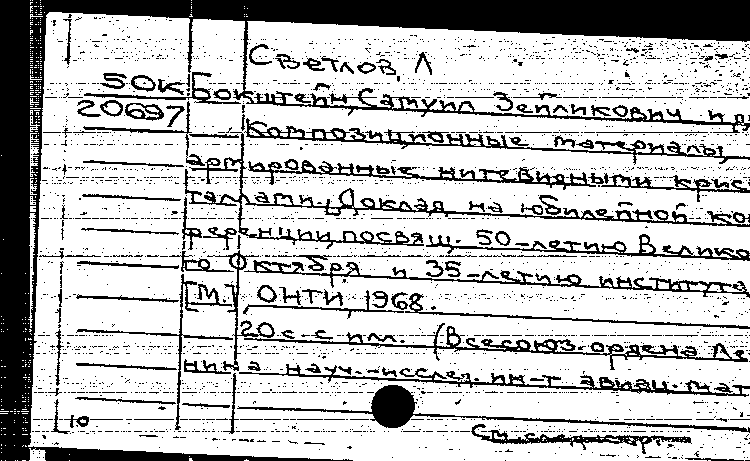 Светлов, Л
50К Бокштейн, Самуил Зейликович и др
20697 Композиционные материалы,
армированные нитевидными крис-
таллами. Доклад на юбилейной кон
ференции, посвящ. 50-летию Велико
го Октября и 35-летию института
[М.], ОНТИ, 1968.
20 с. с илл. (Всесоюз. ордена Ле
нина науч.-исслед. ин-т авиац. мат
10
См.